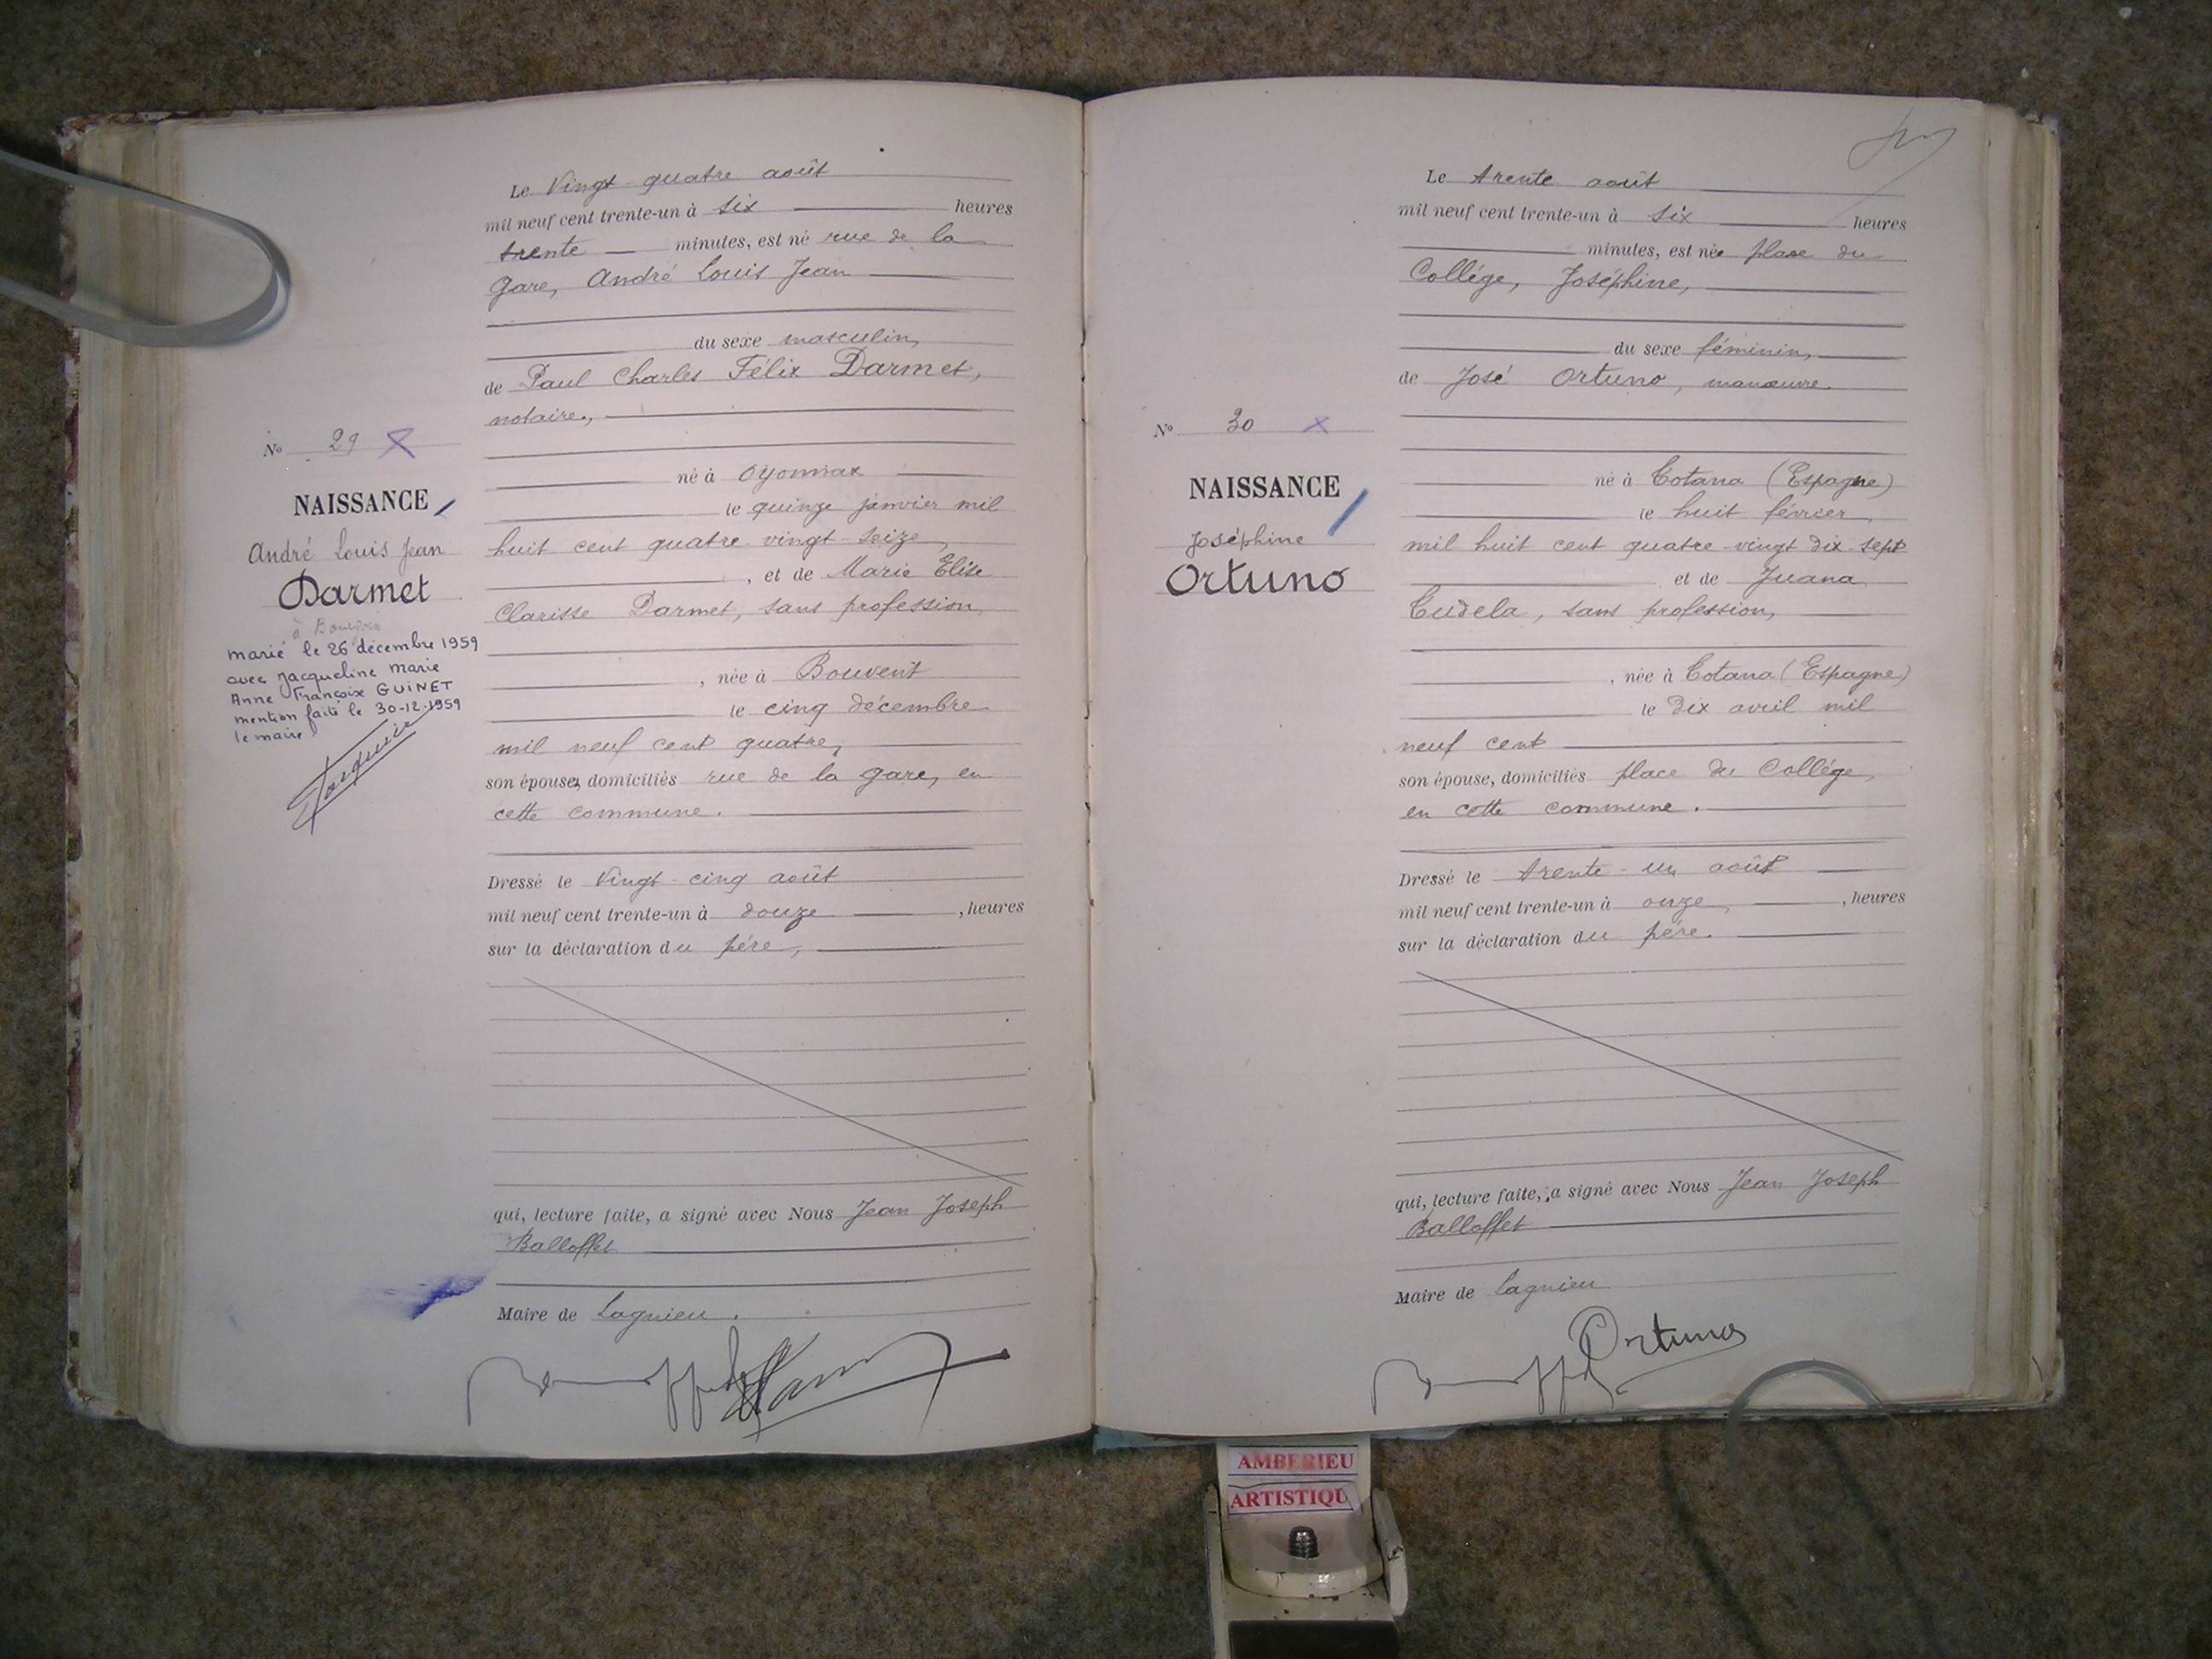 Nº 29
NAISSANCE
André Louis Jean
Darmet
à
marié le 26 décembre 1959
avec Jacqueline Marie
Anne Françoise GUINET
mention faite le 30-12-1959
le maire
Le Vingt-quatre août
mil neuf cent trente-un à six heures
trente minutes, est né rue de la
Gare, André Louis Jean
du sexe masculin,
de Paul Charles Félix Darmet,
notaire,
né à Oyonnax
le quinze janvier mil
huit cent quatre-vingt-seize,
, et de Marie Elise
Clarisse Darmet, sans profession,
, née à Bouvent
le cinq décembre
mil neuf cent quatre,
son épouse, domiciliés rue de la Gare, en
cette commune.
Dressé le Vingt-cinq août
mil neuf cent trente-un à douze , heures
sur la déclaration du pére,
qui, lecture faite, a signé avec Nous Jean Joseph
Balloffet
Maire de Lagnieu.
Nº 30
NAISSANCE
Joséphine
Ortuno
Le trente août
mil neuf cent trente-un à six heures
minutes, est née place du
Collége, Joséphine,
du sexe féminin,
de José Ortuno, manœuvre.
né à Totana (Espagne)
le huit février
mil huit cent quatre-vingt dix-sept
et de Juana
Tudela, sans profession,
, née à Totana (Espagne)
le dix avril mil
neuf cent
son épouse, domiciliés place du Collége,
en cette commune.
Dressé le trente-un août
mil neuf cent trente-un à onze, , heures
sur la déclaration du pére.
qui, lecture faite, a signé avec Nous Jean Joseph
Balloffet
Maire de Lagnieu
Ortuno
AMBERIEU
ARTISTIQU